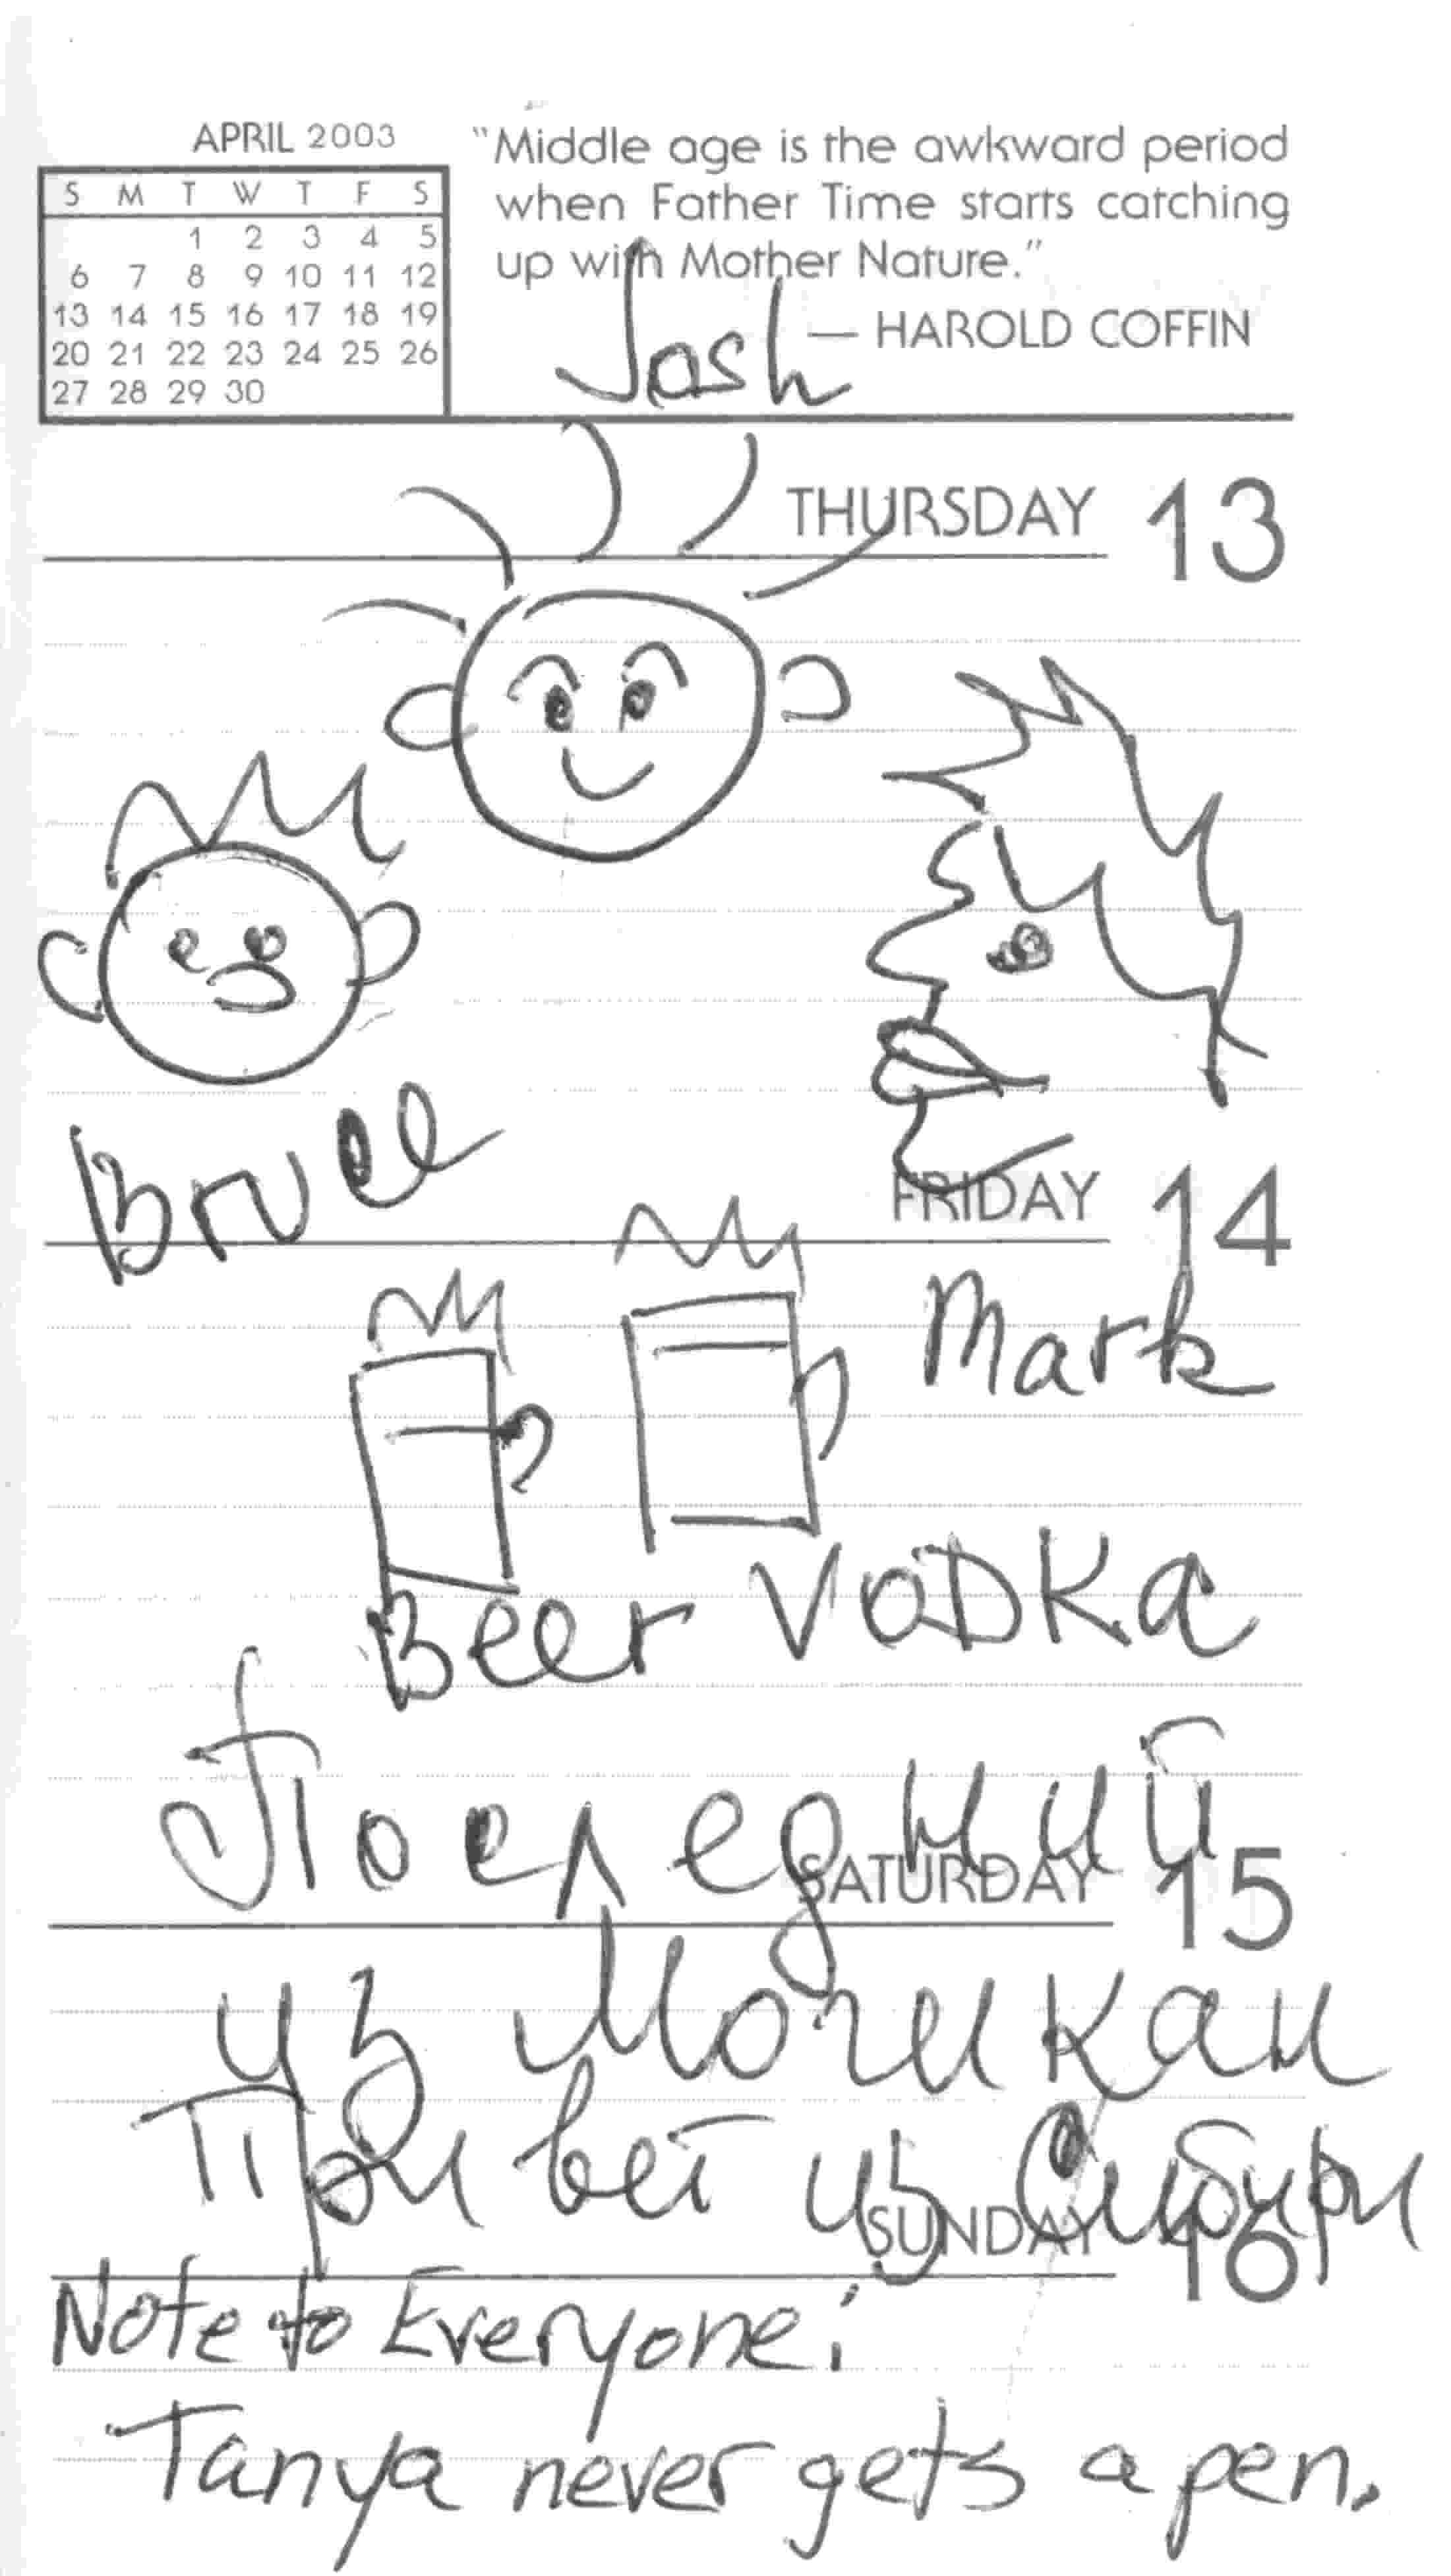 APRIL 2003
S M T W T F S
1 2 3 4 5
6 7 8 9 10 11 12
13 14 15 16 17 18 19
20 21 22 23 24 25 26
27 28 29 30
"Middle age is the awkward period
when Father Time starts catching
up with Mother Nature."
— HAROLD COFFIN
Josh
THURSDAY 13
Bruce
FRIDAY 14
Mark
Beer VODKa
Последний
SATURDAY 15
из Могикан
Привет из Сибири
SUNDAY 16
Note to Everyone:
Tanya never gets a pen.